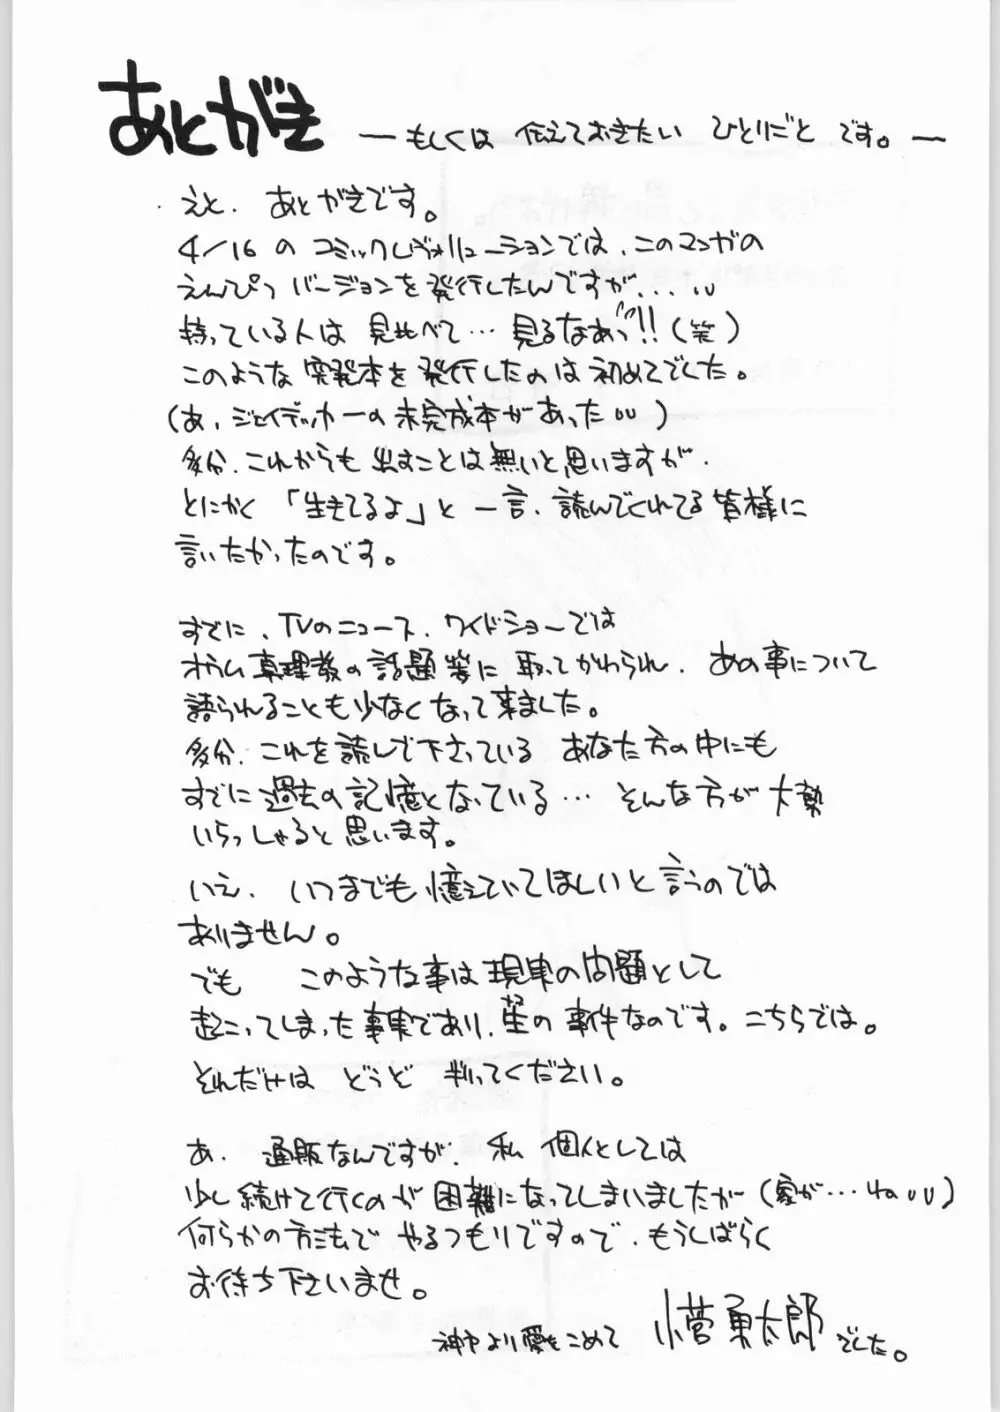 あとがき
― もしくは 伝えておきたい ひとりごと です。―
えと、あとがきです。
4/16 の コミックレヴォリューションでは、このマンガの
えんぴつ バージョンを発行したんですが...
持っている人は 見比べて… 見るなあっ!!(笑)
このような 突発本を発行したのは初めてでした。
(あ、ジェイデッカーの未完成本があった)
多分、これからも出すことは無いと思いますが、
とにかく「生きてるよ」と一言、読んでくれてる皆様に
言いたかったのです。
すでに、TVのニュース、ワイドショーでは
オウム真理教の話題等に取ってかわられ、あの事について
語られることも少なくなって来ました。
多分、これを読んで下さっている あなた方の中にも
すでに過去の記憶となっている… そんな方が大勢
いらっしゃると思います。
いえ、いつまでも憶えていてほしいと言うのでは
ありません。
でも このような事は現実の問題として
起こってしまった事実であり、生の事件なのです。こちらでは。
それだけは どうぞ 判ってください。
あ、通販なんですが、私個人としては
少し続けて行くのが困難になってしまいましたが(家が…ね)
何らかの方法で やるつもりですので、もうしばらく
お待ち下さいませ。
神戸より愛をこめて 小菅勇太郎でした。